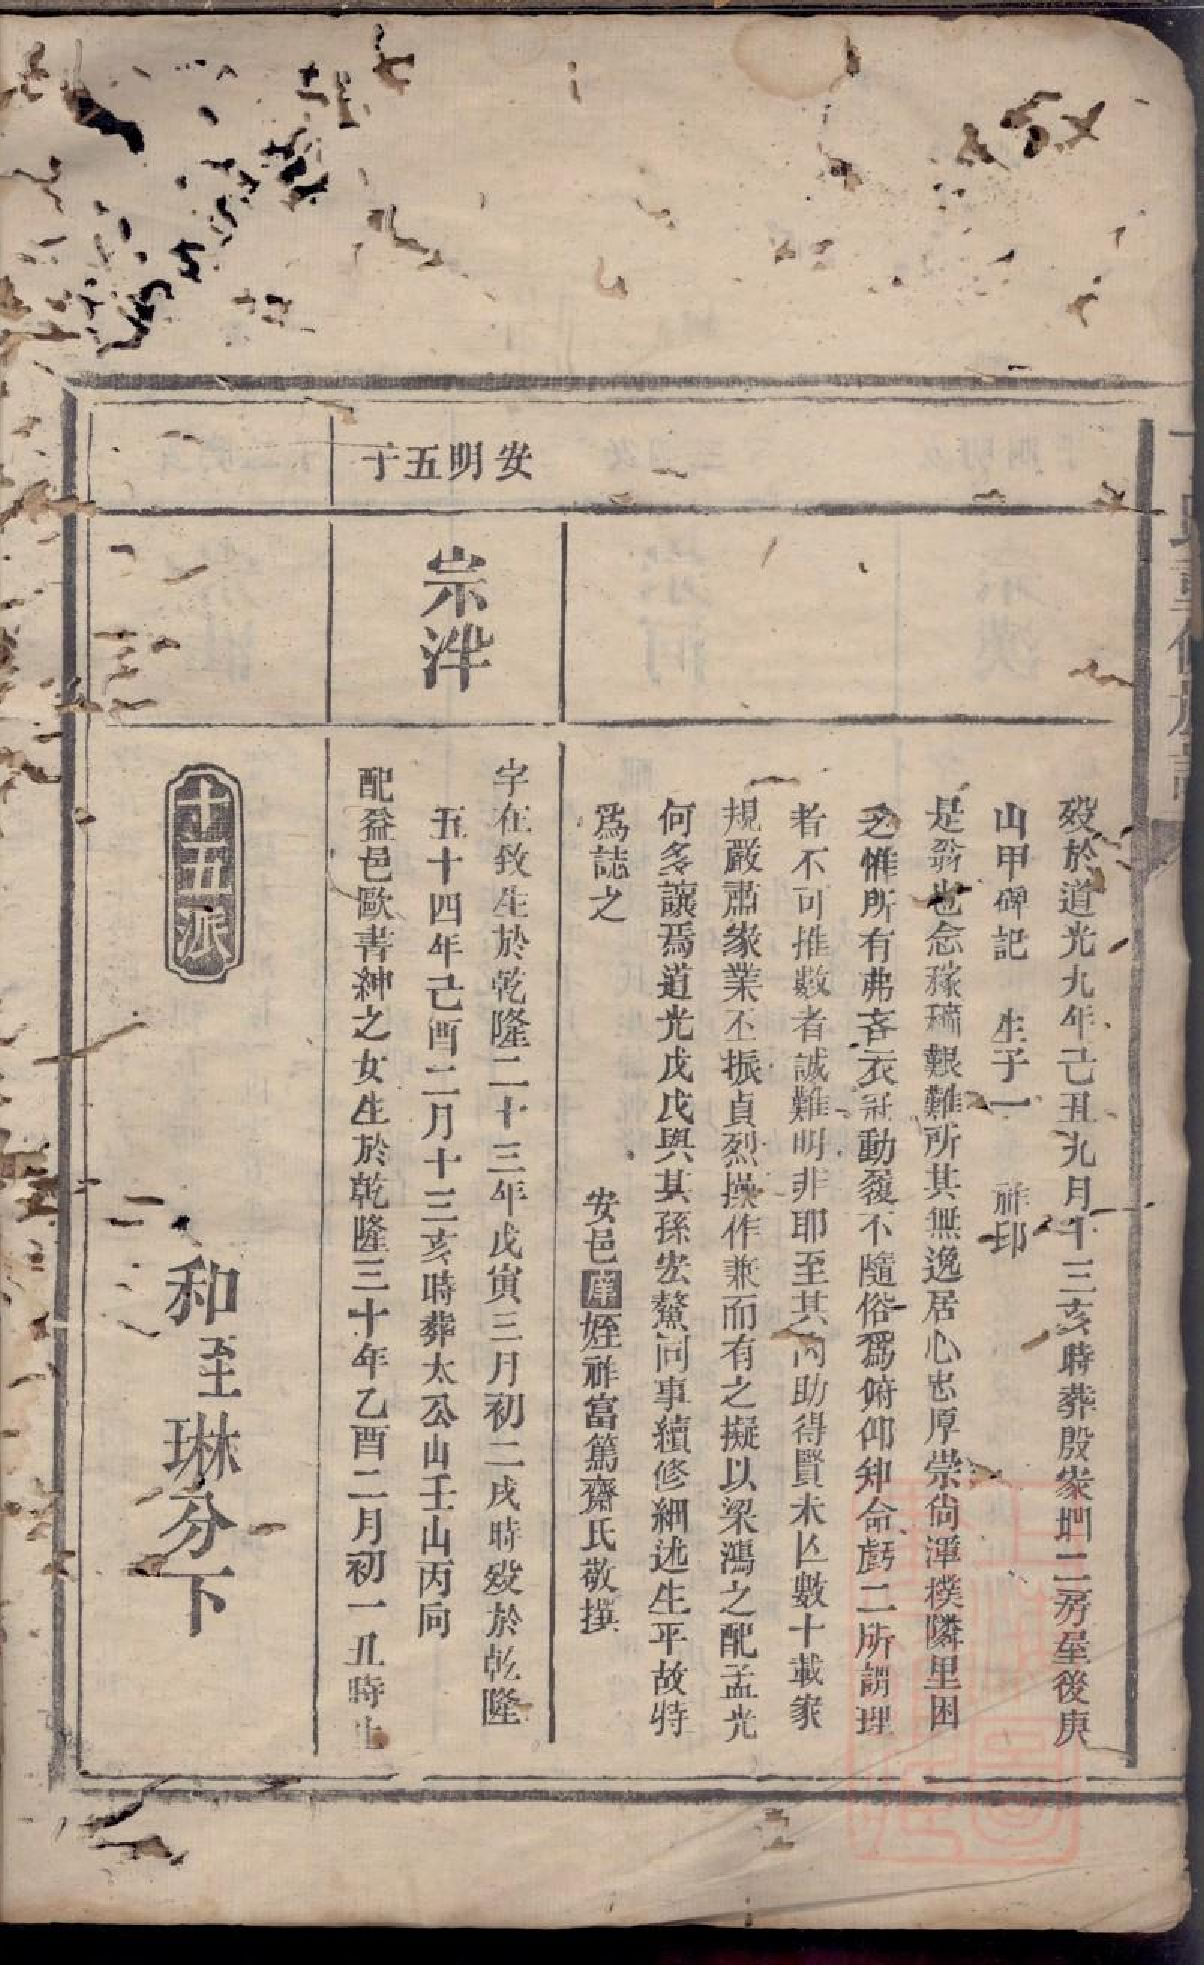 歿於道光九年己丑九月十三亥時葬殷家圳二房屋後庚
山甲碑記　生子一　祚邱
是翁也念稼穡艱難所其無逸居心忠厚崇尙渾樸隣里困
乏惟所有弗吝衣冠動履不隨俗爲俯仰知命虧二所謂理
者不可推數者誠難明非耶至其內助得賢未亾數十載家
規嚴肅家業丕振貞烈操作兼而有之擬以梁鴻之配孟光
何多讓焉道光戊戌與其孫宏鰲同事續修細述生平故特
爲誌之
安邑庠姪祚富篤齋氏敬撰
安明五子
宗泮
字在致生於乾隆二十三年戊寅三月初二戌時歿於乾隆
五十四年己酉二月十三亥時葬太公山壬山丙向
配益邑歐書紳之女生於乾隆三十年乙酉二月初一丑時
十四派
和至琳分下